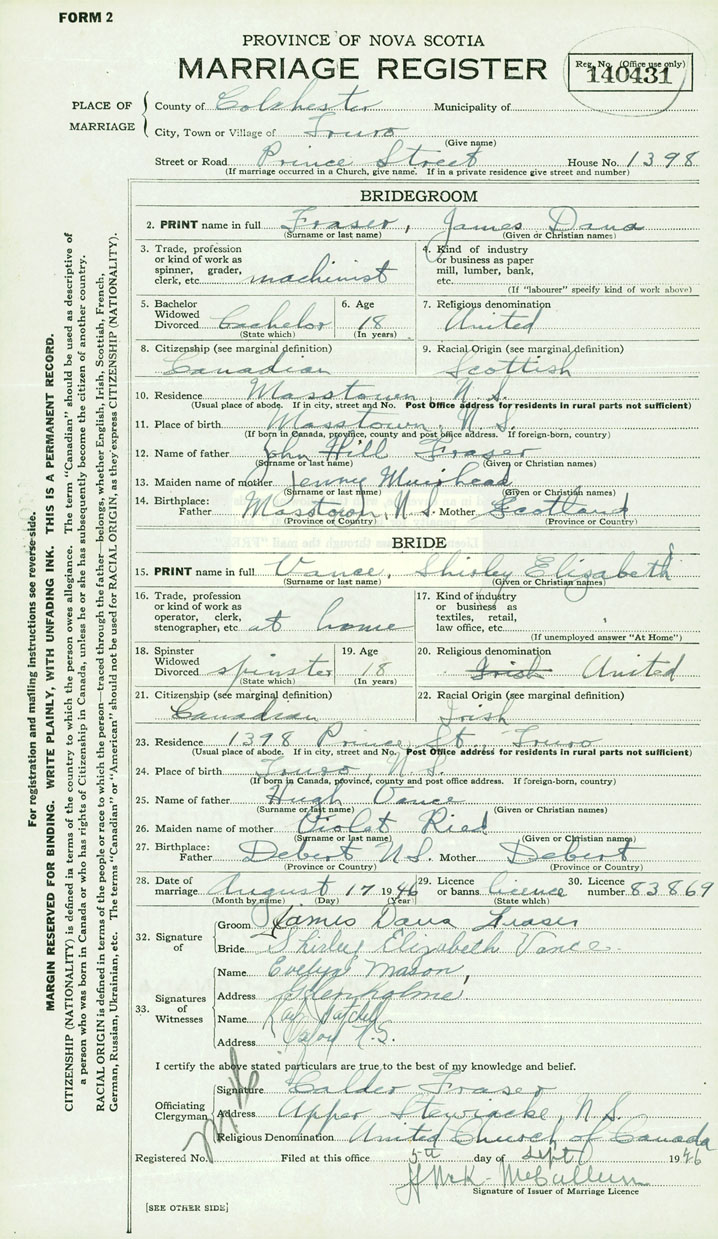 FORM 2
PROVINCE OF NOVA SCOTIA
MARRIAGE REGISTER
Reg. No. (Office use only)
140431
PLACE OF MARRIAGE
County of Colchester Municipality of
City, Town or Village of Truro
(Give name)
Street or Road Prince Street House No. 1398
(If marriage occurred in a Church, give name. If in a private residence give street and number)
BRIDEGROOM
2. PRINT name in full Fraser, James Dana
(Surname or last name) (Given or Christian names)
3. Trade, profession or kind of work as spinner, grader, clerk, etc. machinist
4. Kind of industry or business as paper mill, lumber, bank, etc.
(If "labourer" specify kind of work above)
5. Bachelor Widowed Divorced Bachelor (State which)
6. Age 18 (In years)
7. Religious denomination United
8. Citizenship (see marginal definition) Canadian
9. Racial Origin (see marginal definition) Scottish
10. Residence Masstown, N.S.
(Usual place of abode. If in city, street and No. Post Office address for residents in rural parts not sufficient)
11. Place of birth Masstown, N.S.
(If born in Canada, province, county and post office address. If foreign-born, country)
12. Name of father John Hill Fraser
(Surname or last name) (Given or Christian names)
13. Maiden name of mother Jenny Muirhead
(Surname or last name) (Given or Christian names)
14. Birthplace: Father Masstown, N.S. Mother Scotland
(Province or Country) (Province or Country)
BRIDE
15. PRINT name in full Vance, Shirley Elizabeth
(Surname or last name) (Given or Christian names)
16. Trade, profession or kind of work as operator, clerk, stenographer, etc at home
17. Kind of industry or business as textiles, retail, law office, etc.
(If unemployed answer "At Home")
18. Spinster Widowed Divorced spinster (State which)
19. Age 18 (In years)
20. Religious denomination Irish United
21. Citizenship (see marginal definition) Canadian
22. Racial Origin (see marginal definition) Irish
23. Residence 1398 Prince St., Truro
(Usual place of abode. If in city, street and No. Post Office address for residents in rural parts not sufficient)
24. Place of birth Truro, N.S.
(If born in Canada, province, county and post office address. If foreign-born, country)
25. Name of father Hugh Vance
(Surname or last name) (Given or Christian names)
26. Maiden name of mother Violet Ried
(Surname or last name) (Given or Christian names)
27. Birthplace: Father Debert N.S. Mother Debert
(Province or Country) (Province or Country)
28. Date of marriage August 17 1946
(Month by name) (Day) (Year)
29. Licence or banns licence (State which)
30. Licence number 83869
32. Signature of
Groom James Dana Fraser
Bride Shirley Elizabeth Vance
33. Signatures of Witnesses
Name Evelyn Mason,
Address Glenholme
Name
Address N.S.
I certify the above stated particulars are true to the best of my knowledge and belief.
Officiating Clergyman
Signature Calder Fraser
Address Upper Stewiacke, N.S.
Religious Denomination United Church of Canada
Registered No. Filed at this office 5th day of Sept 1946
McCallum
Signature of Issuer of Marriage Licence
[SEE OTHER SIDE]
For registration and mailing instructions see reverse-side.
MARGIN RESERVED FOR BINDING. WRITE PLAINLY, WITH UNFADING INK. THIS IS A PERMANENT RECORD.
CITIZENSHIP (NATIONALITY) is defined in terms of the country to which the person owes allegiance. The term "Canadian" should be used as descriptive of
a person who was born in Canada or who has rights of Citizenship in Canada, unless he or she has subsequently become the citizen of another country.
RACIAL ORIGIN is defined in terms of the people or race to which the person—traced through the father—belongs, whether English, Irish, Scottish, French,
German, Russian, Ukrainian, etc. The terms "Canadian" or "American" should not be used for RACIAL ORIGIN, as they express CITIZENSHIP (NATIONALITY).